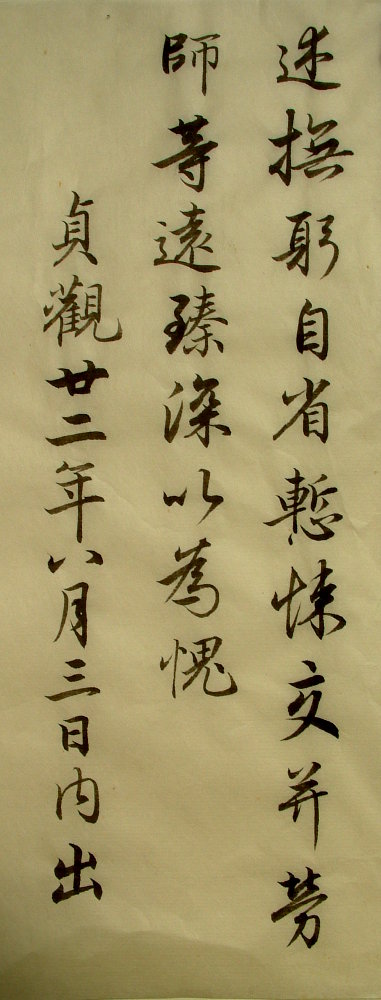 述撫躬自省慙悚交并勞
師等遠臻深以為愧
貞觀廿二年八月三日內出